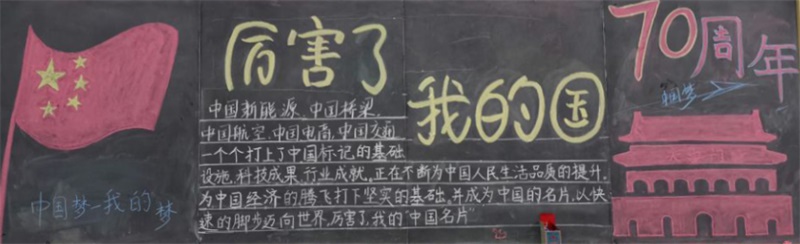 厉害了
我的国
70周年
中国新能源、中国桥梁、
中国航空、中国电商、中国交通
一个个打上了中国标记的基础
设施、科技成果、行业成就,正在不断为中国人民生活品质的提升,
为中国经济的腾飞打下坚实的基础,并成为中国的名片,以快
速的脚步迈向世界,厉害了,我的"中国名片"
中国梦—我的梦